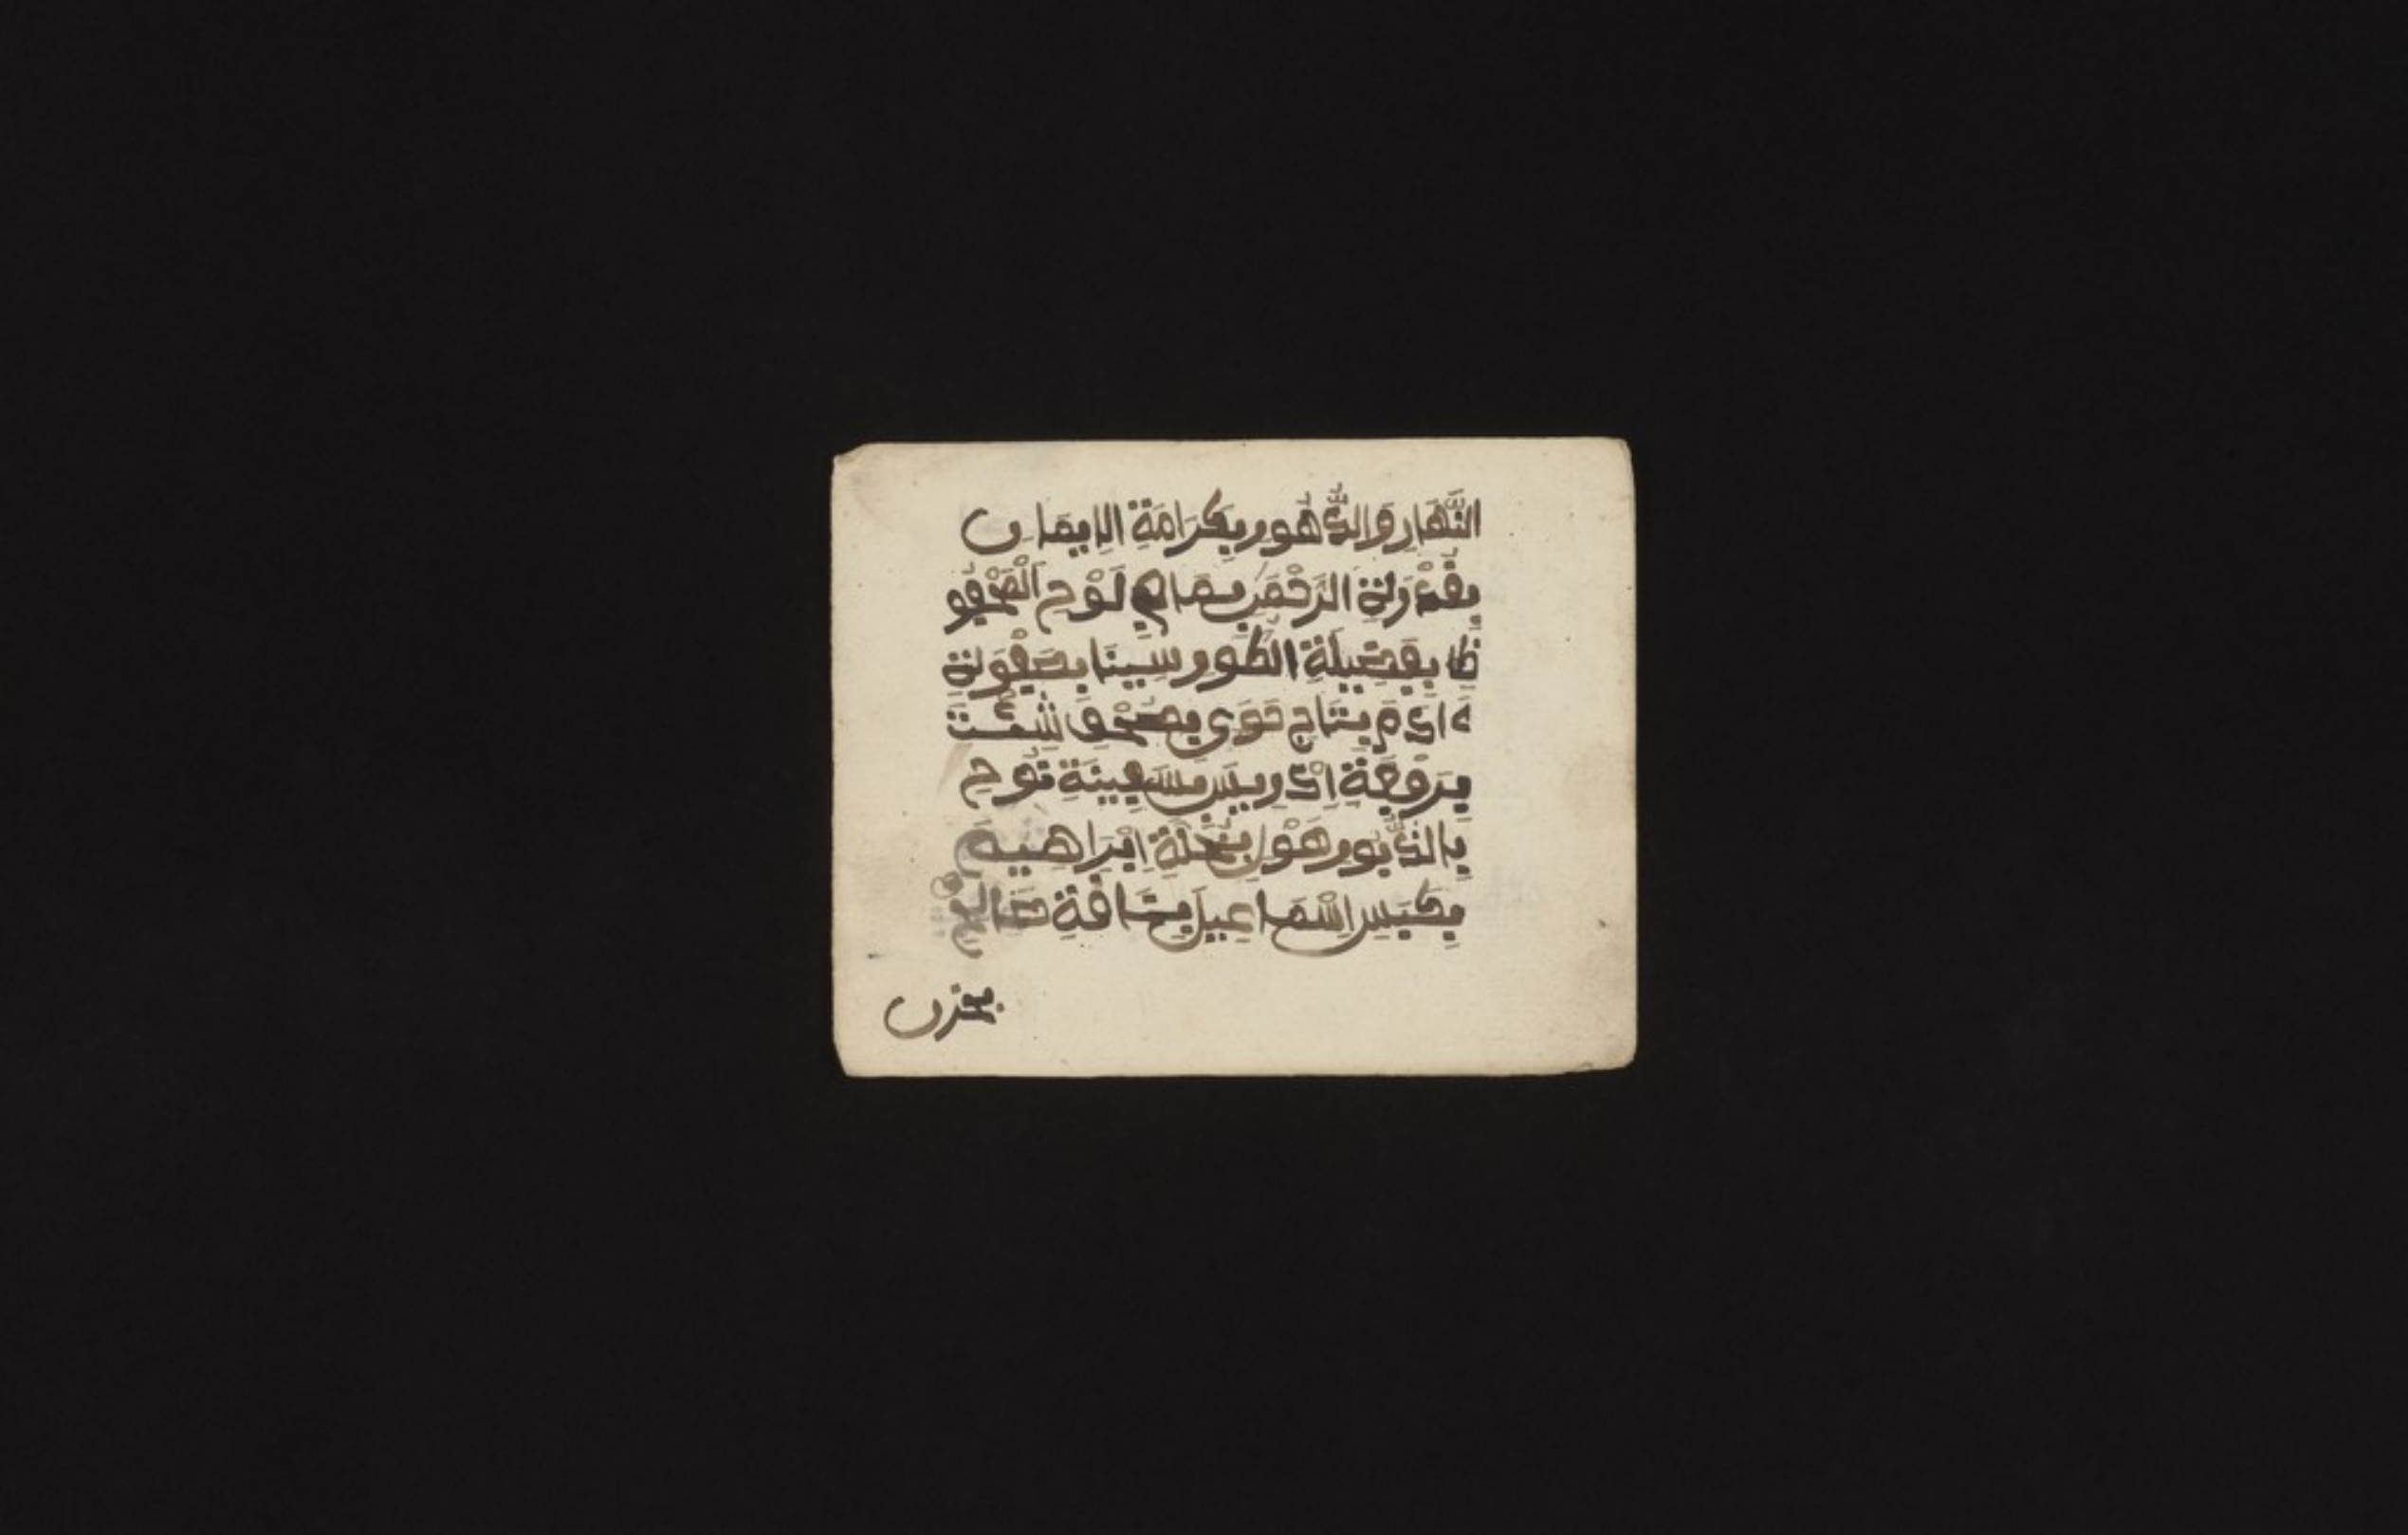 النَّهَارِ وَالدُّهُورِ بِكَرَامَةِ الاِيمَانِ
بِقُدْرَةِ الرَّحْمَنِ بِمَا فِي لَوْحِ الْمَحْفُو
ظًا بِفَضِيلَةِ الطُّورِ سِينَا بِصَفْوَةِ
ءَادَمَ بِتَاجِ حَوَى بِصُحُفِ شِئْتَ
بِرَفْعَةِ اِدْرِيسَ بِسَفِينَةِ نُوحِ
بِالدَّبُورِ هَوْلِ بِخُلَّةِ اِبْرَاهِيمَ
بِكَبَسِ اِسْمَاعِيلَ بِنَاقَةِ صَالِحْ
بحزن